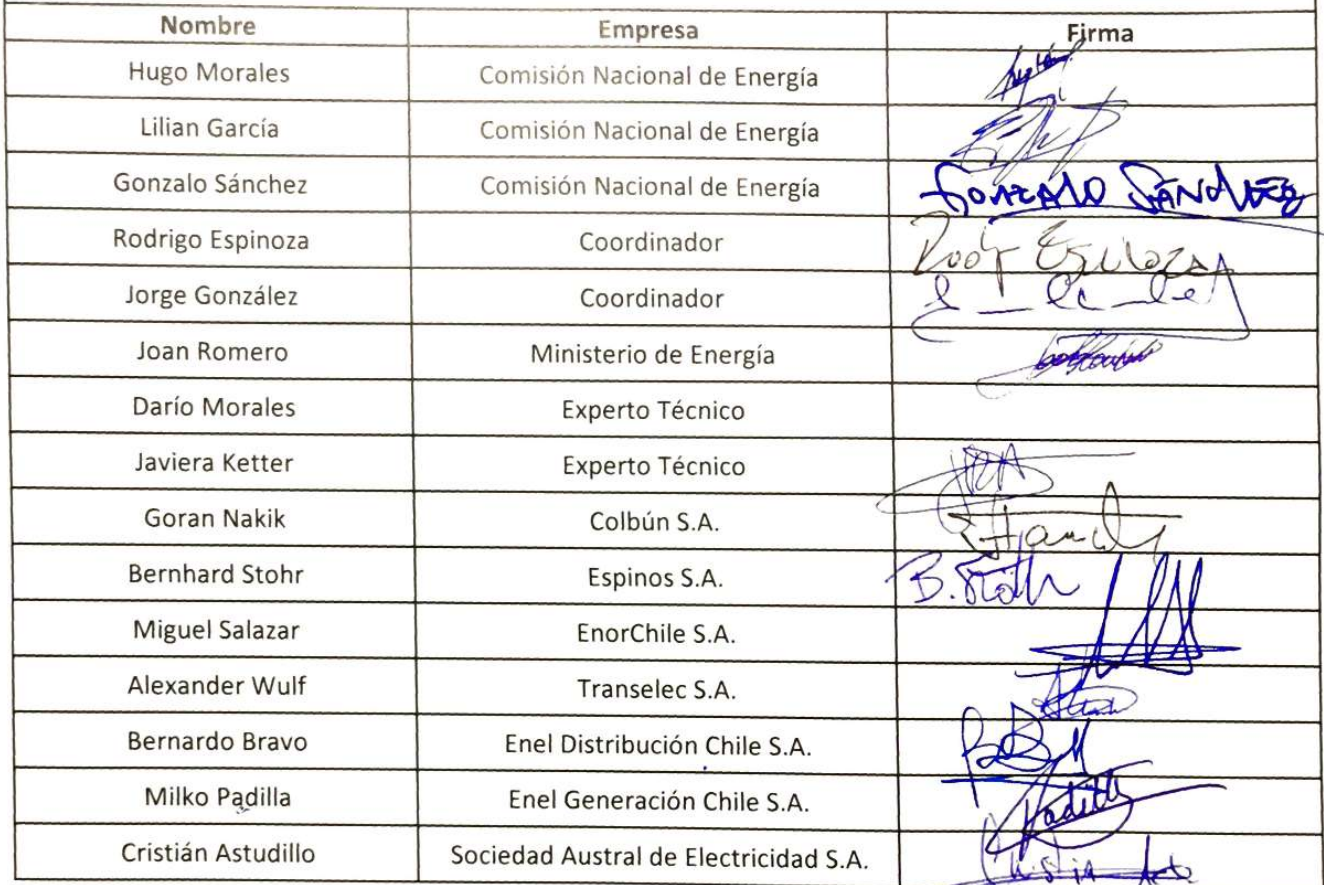 Nombre Empresa Firma
Hugo Morales Comisión Nacional de Energía
Lilian García Comisión Nacional de Energía
Gonzalo Sánchez Comisión Nacional de Energía Gonzalo Sánchez
Rodrigo Espinoza Coordinador
Jorge González Coordinador
Joan Romero Ministerio de Energía
Darío Morales Experto Técnico
Javiera Ketter Experto Técnico
Goran Nakik Colbún S.A.
Bernhard Stohr Espinos S.A. B. Stöhr
Miguel Salazar EnorChile S.A.
Alexander Wulf Transelec S.A.
Bernardo Bravo Enel Distribución Chile S.A.
Milko Padilla Enel Generación Chile S.A. Padilla
Cristián Astudillo Sociedad Austral de Electricidad S.A.